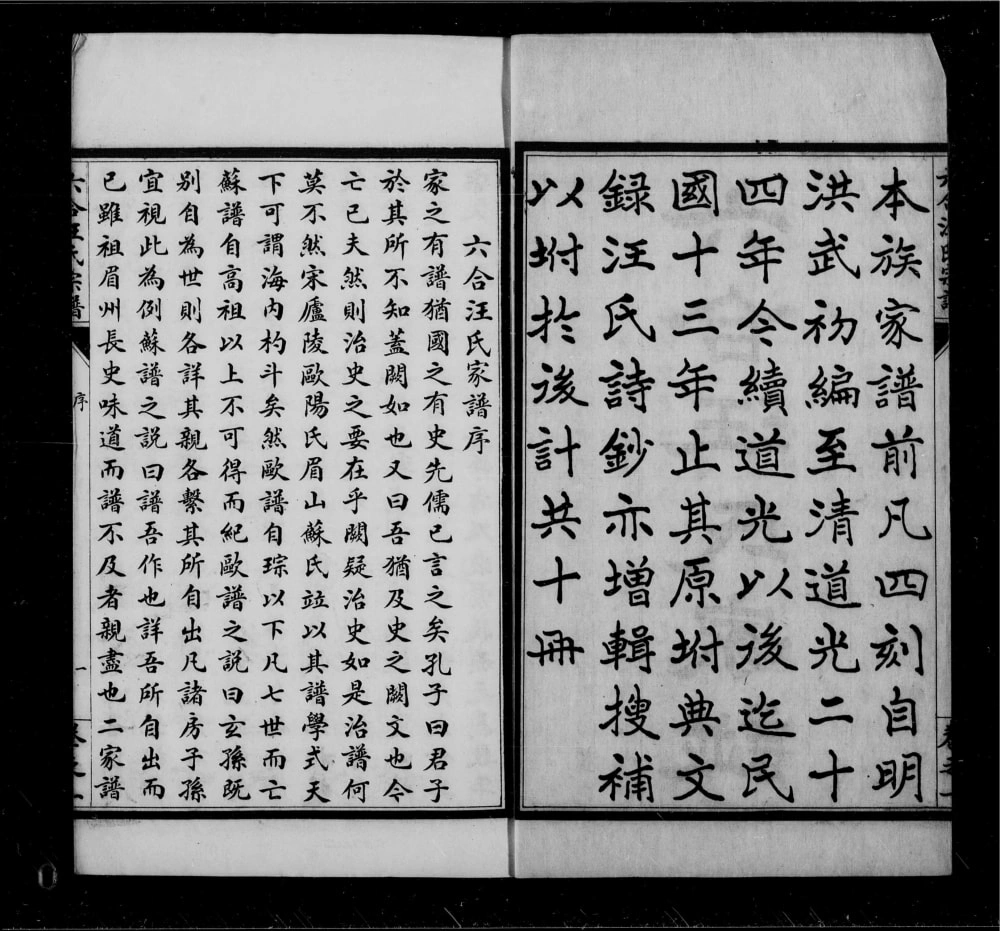 本族家譜前凡四刻自明
洪武初編至清道光二十
四年今續道光以後迄民
國十三年止其原坿典文
録汪氏詩鈔亦增輯搜補
以坿於後計共十冊
六合汪氏家譜序
家之有譜猶國之有史先儒已言之矣孔子曰君子
於其所不知蓋闕如也又曰吾猶及史之闕文也今
亡已夫然則治史之要在乎闕疑治史如是治譜何
莫不然宋廬陵歐陽氏眉山蘇氏竝以其譜學式天
下可謂海內杓斗矣然歐譜自琮以下凡七世而亡
蘇譜自高祖以上不可得而紀歐譜之說曰玄孫旣
別自為世則各詳其親各繫其所自出凡諸房子孫
宜視此為例蘇譜之說曰譜吾作也詳吾所自出而
已雖祖眉州長史味道而譜不及者親盡也二家譜
六合汪氏宗譜
序
一
卷之一